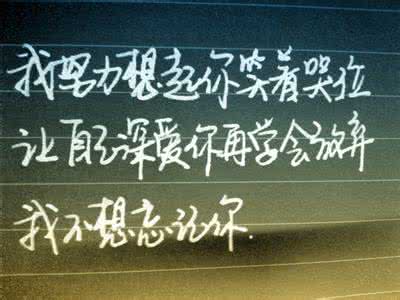 我努力想起你笑着哭泣
让自己深爱你再学会放弃
我不想忘记你.